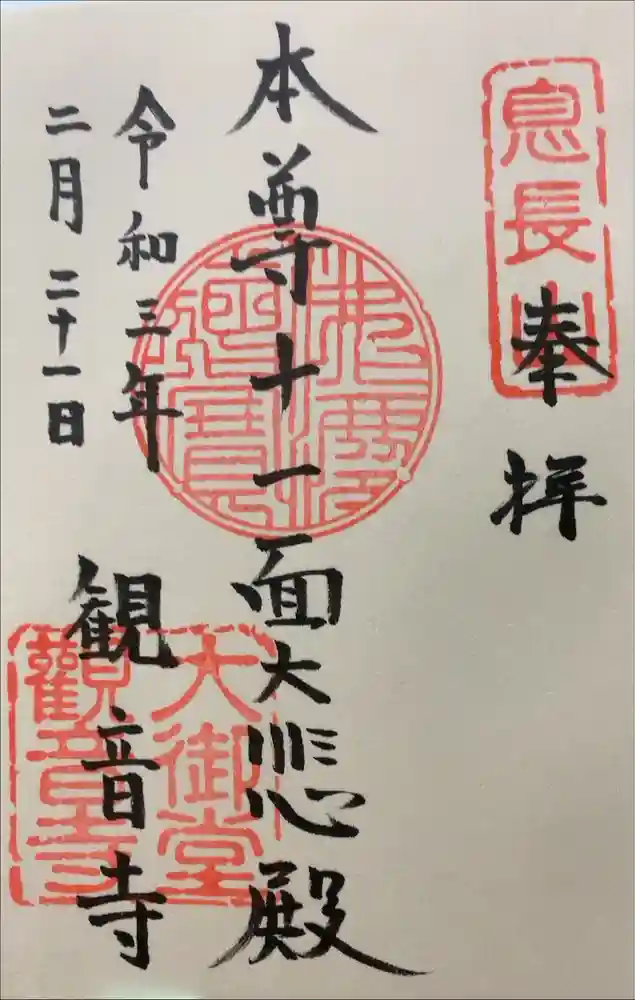 息長山
奉拝
本尊十一面大悲殿
令和三年
二月二十一日
観音寺
大御堂
觀音寺